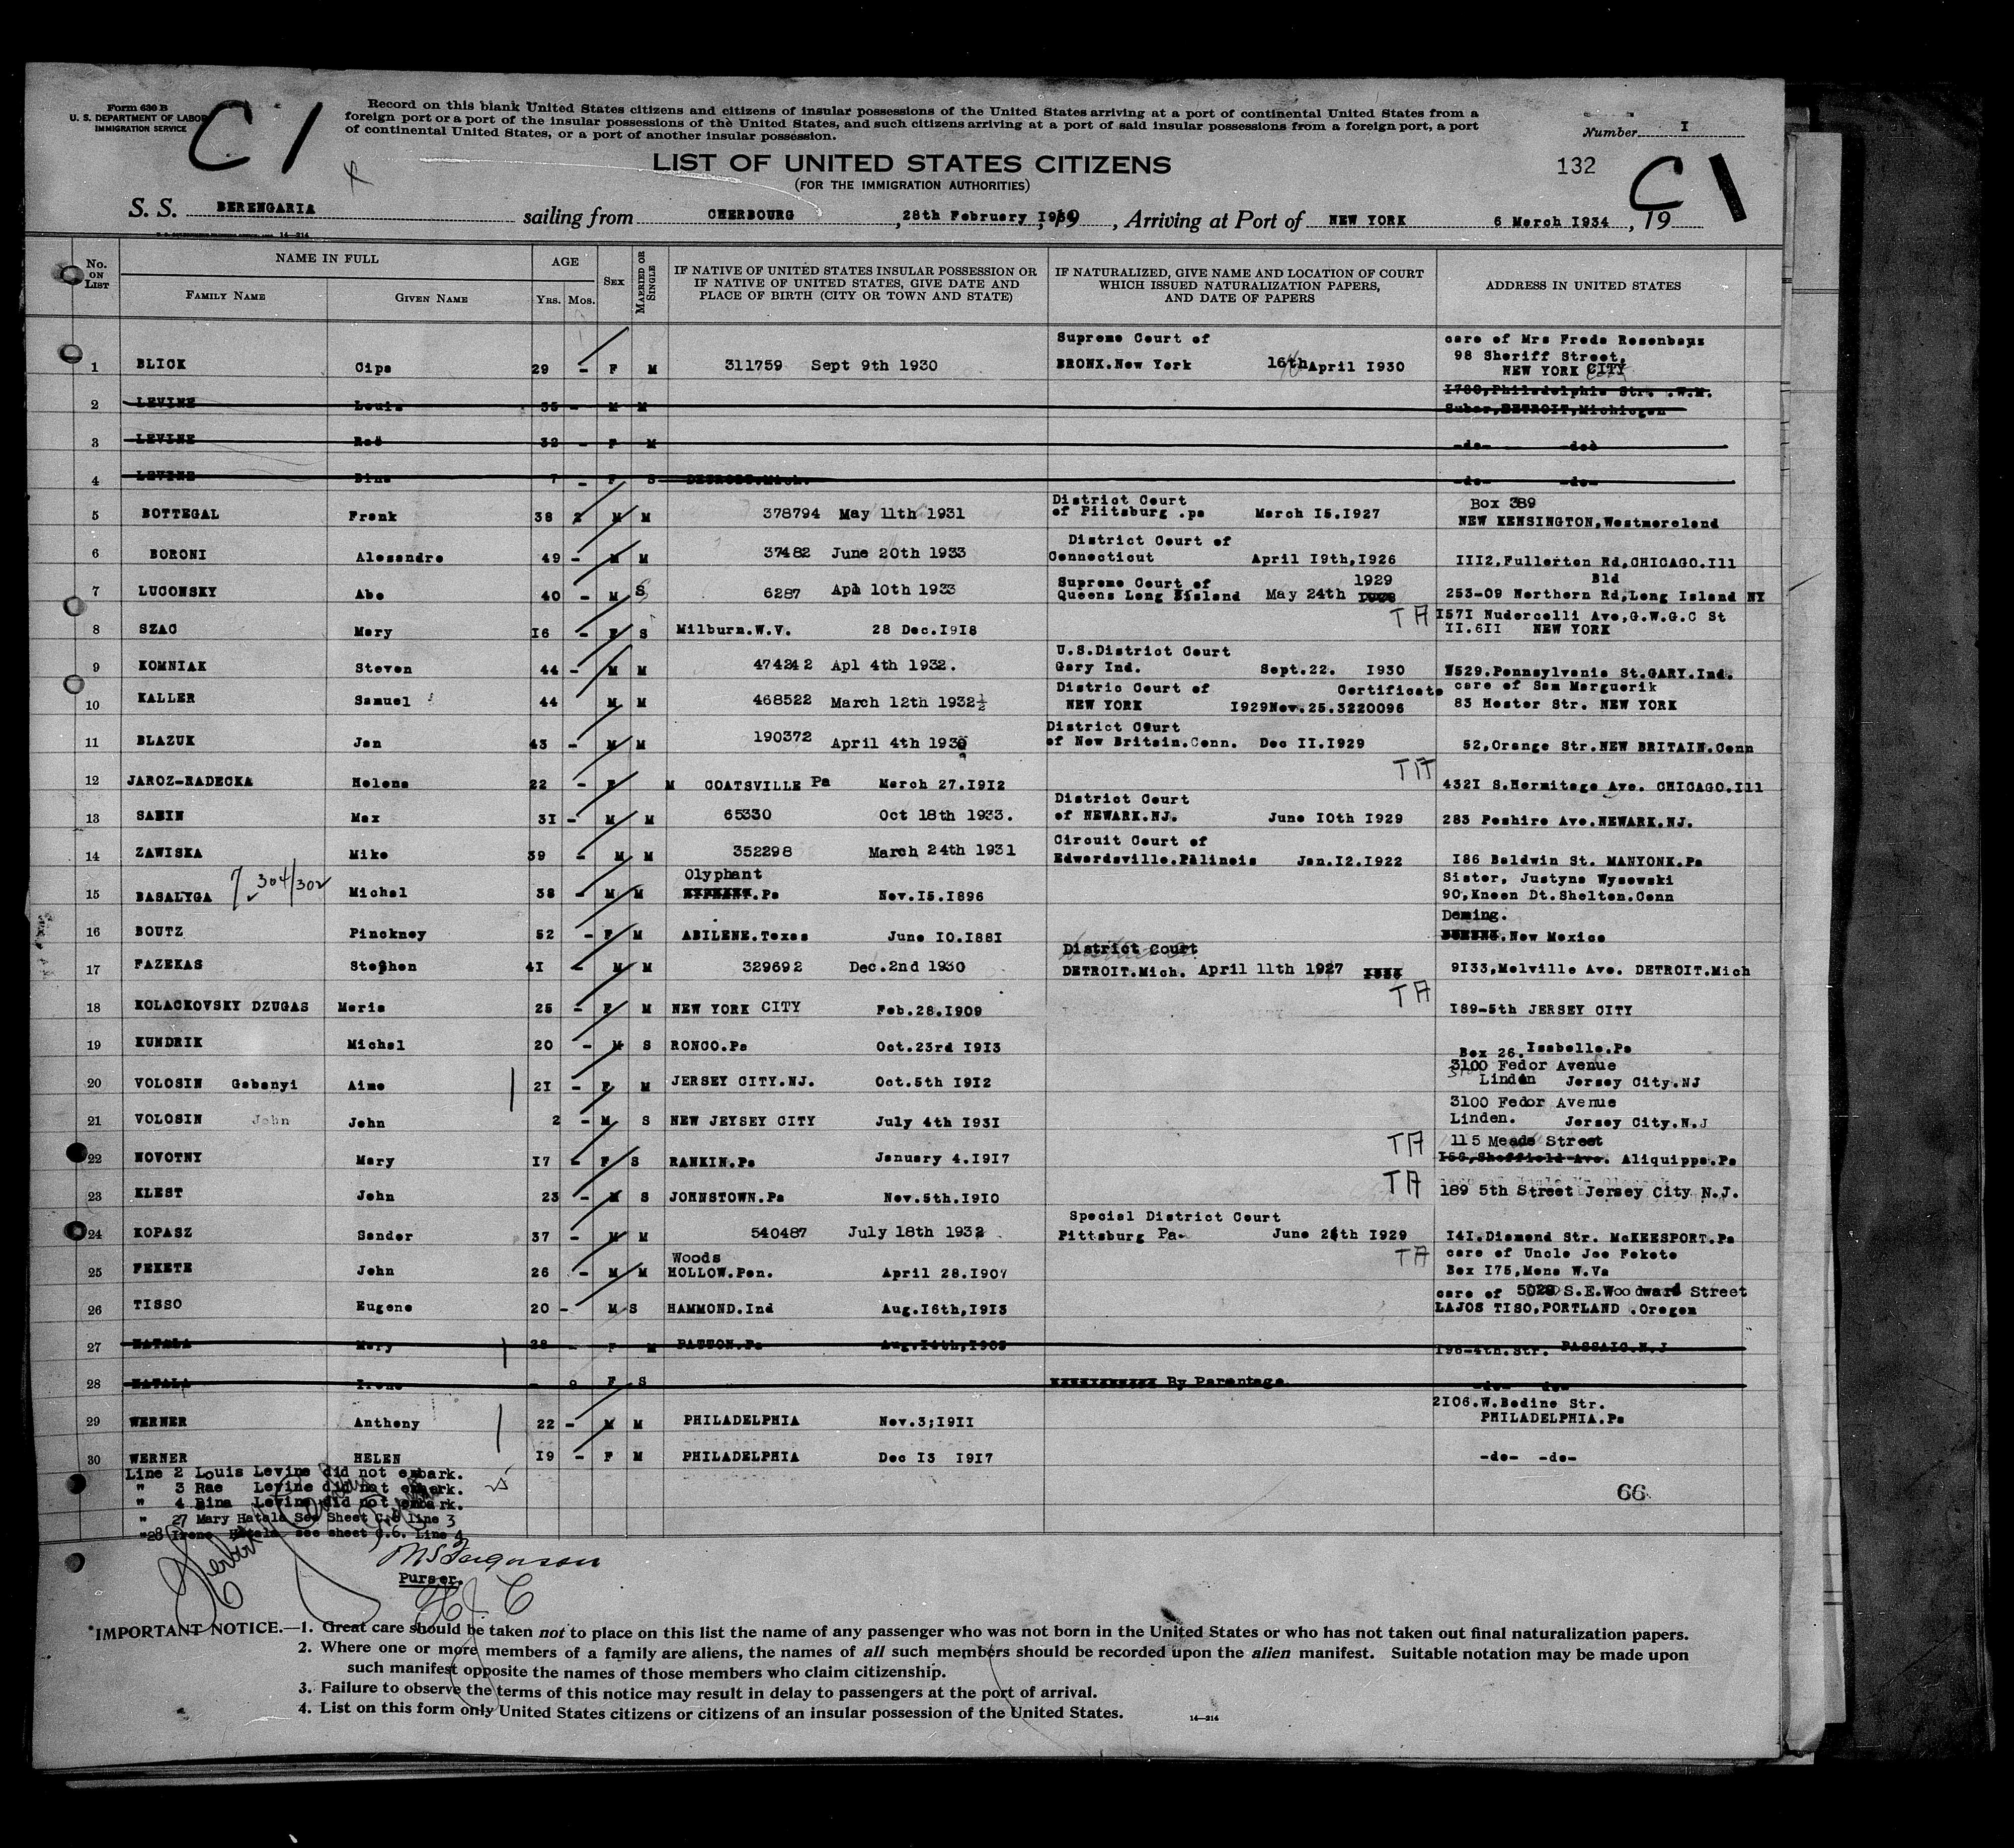 Form 630 B
U. S. DEPARTMENT OF LABOR
IMMIGRATION SERVICE
C 1
Record on this blank United States citizens and citizens of insular possessions of the United States arriving at a port of continental United States from a
foreign port or a port of the insular possessions of the United States, and such citizens arriving at a port of said insular possessions from a foreign port, a port
of continental United States, or a port of another insular possession.
Number I
LIST OF UNITED STATES CITIZENS
(FOR THE IMMIGRATION AUTHORITIES)
132
C 1
S. S. BERENGARIA sailing from CHERBOURG, 28th February I934, 19, Arriving at Port of NEW YORK 6 March I934, 19
No. ON LIST
NAME IN FULL
FAMILY NAME
GIVEN NAME
AGE
YRS. MOS.
SEX
MARRIED OR SINGLE
IF NATIVE OF UNITED STATES INSULAR POSSESSION OR
IF NATIVE OF UNITED STATES, GIVE DATE AND
PLACE OF BIRTH (CITY OR TOWN AND STATE)
IF NATURALIZED, GIVE NAME AND LOCATION OF COURT
WHICH ISSUED NATURALIZATION PAPERS,
AND DATE OF PAPERS
ADDRESS IN UNITED STATES
Supreme Court of care of Mrs Freda
98 Sheriff Street,
1 BLICK Cipa 29 - F M 311759 Sept 9th 1930 BRONX.New York 16th April I930 NEW YORK CITY
I780,Philadelphia Str. .W.M.
2 LEVINE Louis 35 - M M Subar,DETROIT,Michigan
3 LEVINE Rae 32 - F M -do- -do-
4 LEVINE Dina 7 - F S DETROIT.Mich. -do- -do-
District Court Box 389
5 BOTTEGAL Frank 38 2 M M 378794 May 11th 1931 of Piittsburg .pa March I5.I927 NEW KENSINGTON,Westmoreland
District Court of
6 BORONI Alesandro 49 - M M 37482 June 20th 1933 Connecticut April I9th,I926 III2,Fullerton Rd,CHICAGO.Ill
Supreme Court of 1929 Bld
7 LUCONSKY Abe 40 - M S 6287 Apl 10th 1933 Queens Long Island May 24th 253-09 Northern Rd,Long Island NY
TA I57I Nudercelli Ave,G.W.G.C St
8 SZAC Mary I6 - F S Milburn.W.V. 28 Dec.I9I8 II.6II NEW YORK
U.S.District Court
9 KOMNIAK Steven 44 - M M 474242 Apl 4th 1932. Gary Ind. Sept.22. I930 529.Pennsylvania St.GARY.Ind.
Distric Court of Certificate care of Sam Marguerik
10 KALLER Samuel 44 M M 468522 March 12th 1932 NEW YORK I929Nov.25.3220096 83 Hester Str. NEW YORK
District Court
11 BLAZUK Jan 43 - M M 190372 April 4th 1930 of New Britain.Conn. Dec II.I929 52,Orange Str.NEW BRITAIN.Conn
12 JAROZ-RADECKA Helena 22 - F M COATSVILLE Pa March 27.I9I2 432I S.Hermitage Ave. CHICAGO.Ill
District Court
13 SABIN Max 3I - M M 65330 Oct 18th 1933. of NEWARK.NJ. June I0th I929 283 Peshire Ave.NEWARK.NJ.
Circuit Court of
14 ZAWISKA Mike 39 - M M 352298 March 24th 1931 Edwardsville. Jan.I2.I922 I86 Baldwin St. MANYONK.Pa
Olyphant Sister, Justyna Wysowski
15 BASALYGA 304/302 Michal 38 - M M .Pa Nov.I5.I896 90,Kneen Dt.Shelton.Conn
Deming.
16 BOUTZ Pinckney 52 - F M ABILENE.Texas June I0.I88I .New Mexico
District Court
17 FAZEKAS Stephen 4I - M M 329692 Dec.2nd 1930 DETROIT.Mich. April 11th 1927 9I33,Melville Ave. DETROIT.Mich
TA
18 KOLACKOVSKY DZUGAS Maria 25 - F M NEW YORK CITY Feb.28.I909 I89-5th JERSEY CITY
19 KUNDRIK Michal 20 - M S RONCO.Pa Oct.23rd I9I3 Box 26. Isabella.Pa
3100 Fedor Avenue
20 VOLOSIN Gabanyi Aime 2I - F M JERSEY CITY.NJ. Oct.5th I9I2 Linden Jersey City.NJ
3100 Fedor Avenue
21 VOLOSIN John John 2 - M S NEW JEYSEY CITY July 4th I93I Linden. Jersey City.N.J
TA 115 Meade Street
22 NOVOTNY Mary I7 - F S RANKIN.Pa January 4.I9I7 I56,Sheffield Ave. Aliquippa.Pa
23 KLEST John 23 - M S JOHNSTOWN.Pa Nov.5th.I9I0 TA 189 5th Street Jersey City N.J.
Special District Court
24 KOPASZ Sandor 37 - M M 540487 July 18th 1932 Pittsburg Pa. June 2th I929 I4I.Diamond Str. McKEESPORT.Pa
Woods TA care of Uncle Joe Fekete
25 FEKETE John 26 - M M HOLLOW.Pen. April 28.I907 Box I75,Mona W.Va
care of 5029 S.E.Woodward Street
26 TISSO Eugene 20 - M S HAMMOND.Ind Aug.I6th,I9I3 LAJOS TISO,PORTLAND .Oregon
27 HATALA Mary 28 - F M PATTON.Pa Aug.I4th,I905 I96-4th.Str. PASSAIC.N.J
28 HATALA Irene - F S By Parentage -do- -do-
2I06.W.Bodine Str.
29 WERNER Anthony 22 - M M PHILADELPHIA Nov.3;I9II PHILADELPHIA.Pa
30 WERNER HELEN I9 - F M PHILADELPHIA Dec I3 I9I7 -do- -do-
Line 2 Louis Levine did not embark.
" 3 Rae Levine did not embark.
" 4 Dina Levine did not embark.
" 27 Mary Hatala See Sheet C.6 line 3
"28 Irene Hatala see sheet C.6. Line 4
66
Ferguson
Purser.
*IMPORTANT NOTICE.—1. Great care should be taken not to place on this list the name of any passenger who was not born in the United States or who has not taken out final naturalization papers.
2. Where one or more members of a family are aliens, the names of all such members should be recorded upon the alien manifest. Suitable notation may be made upon
such manifest opposite the names of those members who claim citizenship.
3. Failure to observe the terms of this notice may result in delay to passengers at the port of arrival.
4. List on this form only United States citizens or citizens of an insular possession of the United States.
14—214